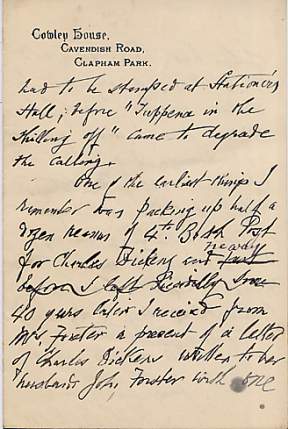 Cowley House,
CAVENDISH ROAD,
CLAPHAM PARK.
had to be stamped at Stationers
Hall, before "Tuppence in the
Shilling off" came to degrade
the calling.
One of the earliest things I
remember was packing up half a
dozen reams of 4to Bath Post
for Charles Dickens and nearly
before I left Piccadilly
40 years later I received from
Mrs Forster a present of a letter
of Charles Dickens written to her
husband John Forster with one